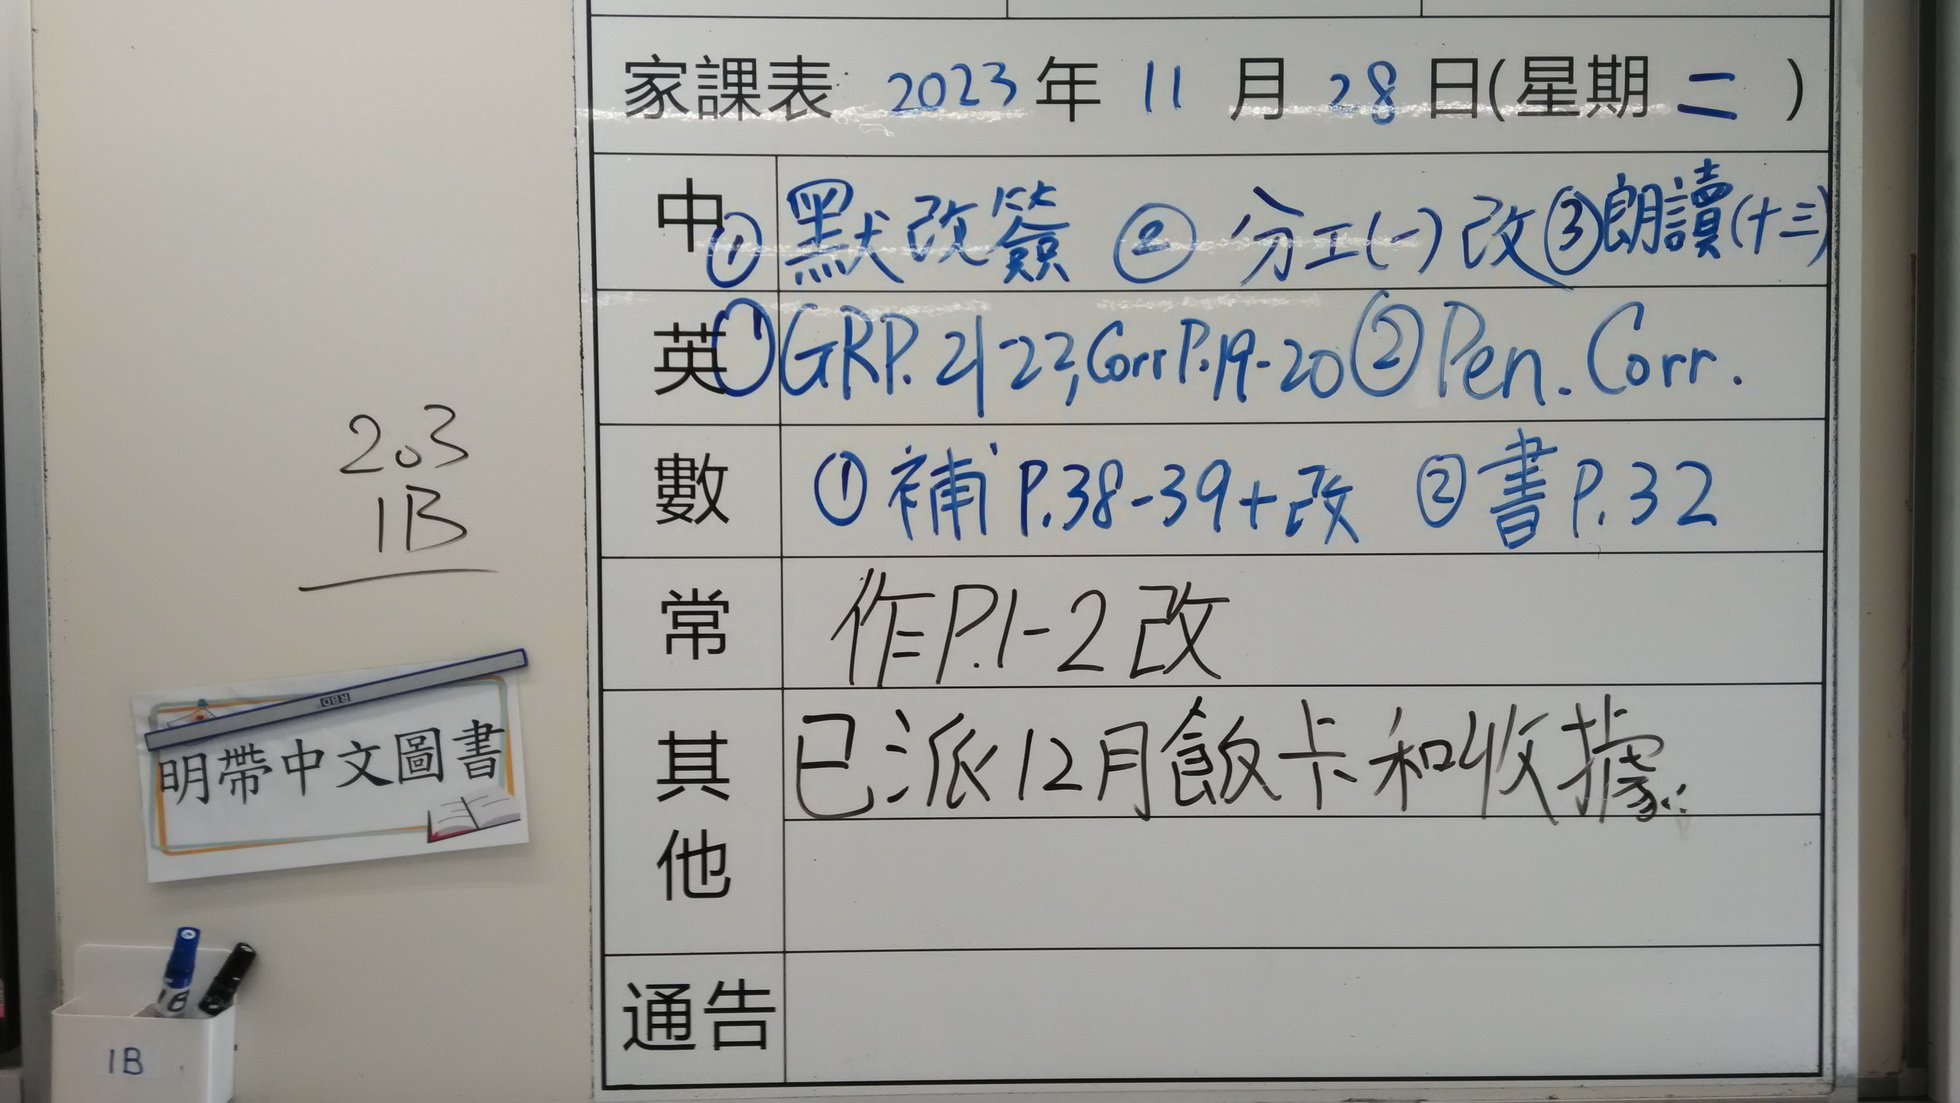 家課表 2023年 11 月 28 日(星期 二 )
中 ① 默改簽 ② 分工(一)改 ③ 朗讀(十三)
英 ① GRP.21-22,Corr P.19-20 ② Pen. Corr.
數 ① 補 P.38-39+改 ② 書 P.32
常 作P.1-2 改
其他 已派12月飯卡和收據.
通告
203
1B
RBD
明帶中文圖書
1B
1B